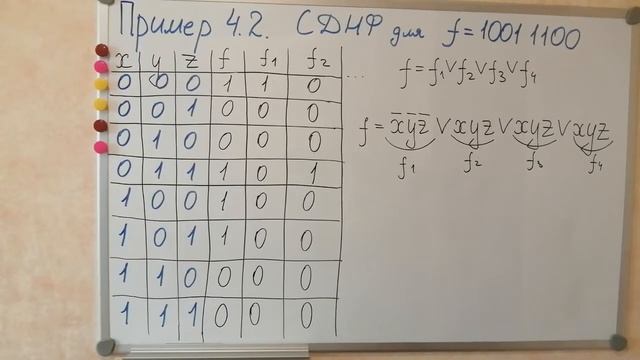 Пример 4.2. СДНФ для f = 1001 1100
x y z f f₁ f₂
0 0 0 1 1 0 ...
0 0 1 0 0 0
0 1 0 0 0 0
0 1 1 1 0 1
1 0 0 1 0 0
1 0 1 1 0 0
1 1 0 0 0 0
1 1 1 0 0 0
f = f₁ ∨ f₂ ∨ f₃ ∨ f₄
f = x̅y̅z̅ ∨ xyz ∨ xyz ∨ xyz
f₁ f₂ f₃ f₄